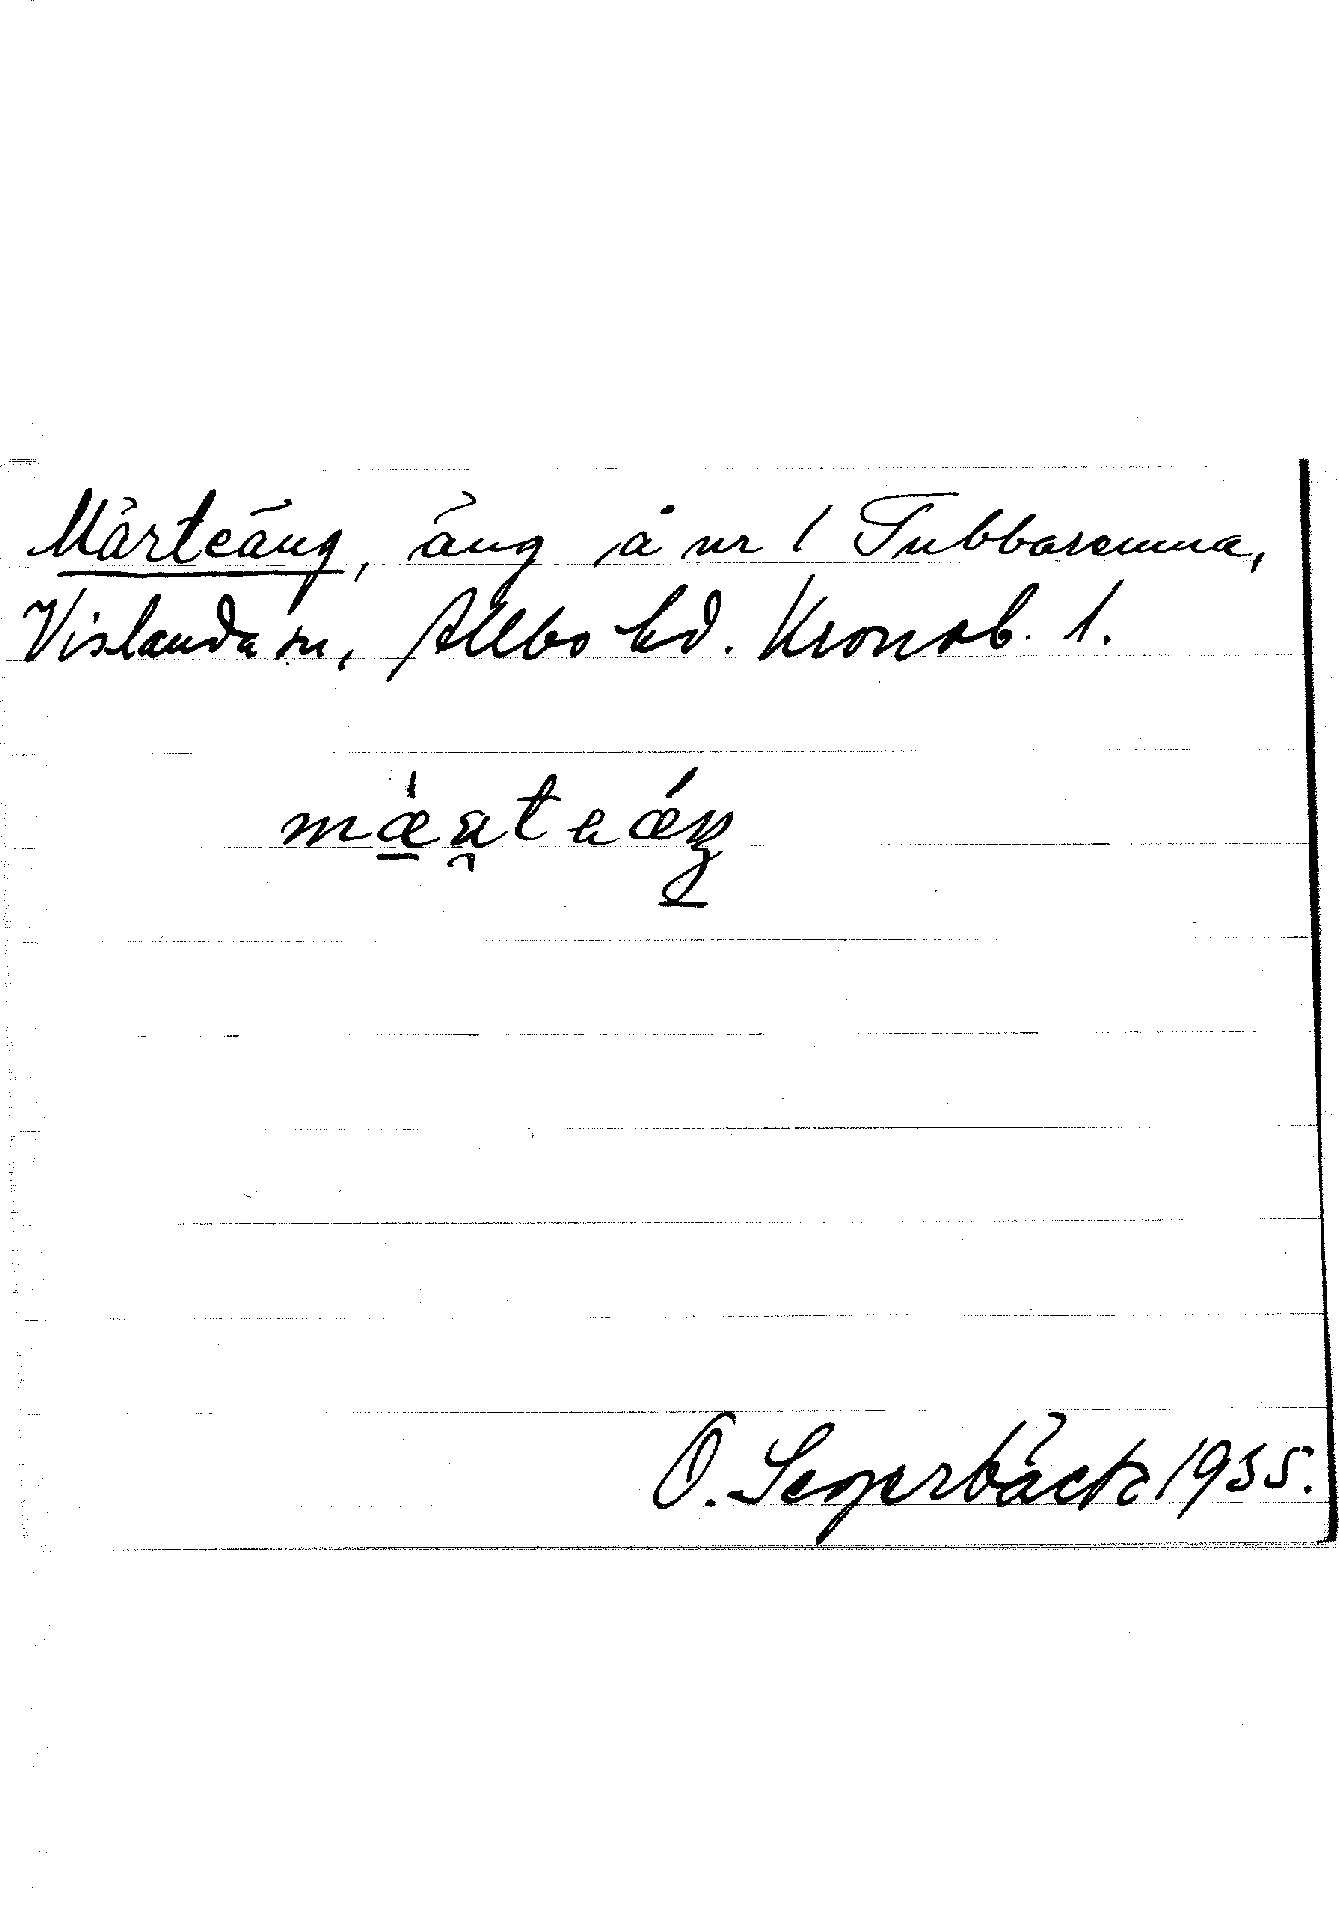 Märteäng, äng å nr 1 Tubbaremma,
Vislanda sn, Allbo hd. Kronob. l.
O. Segerbäck 1935.